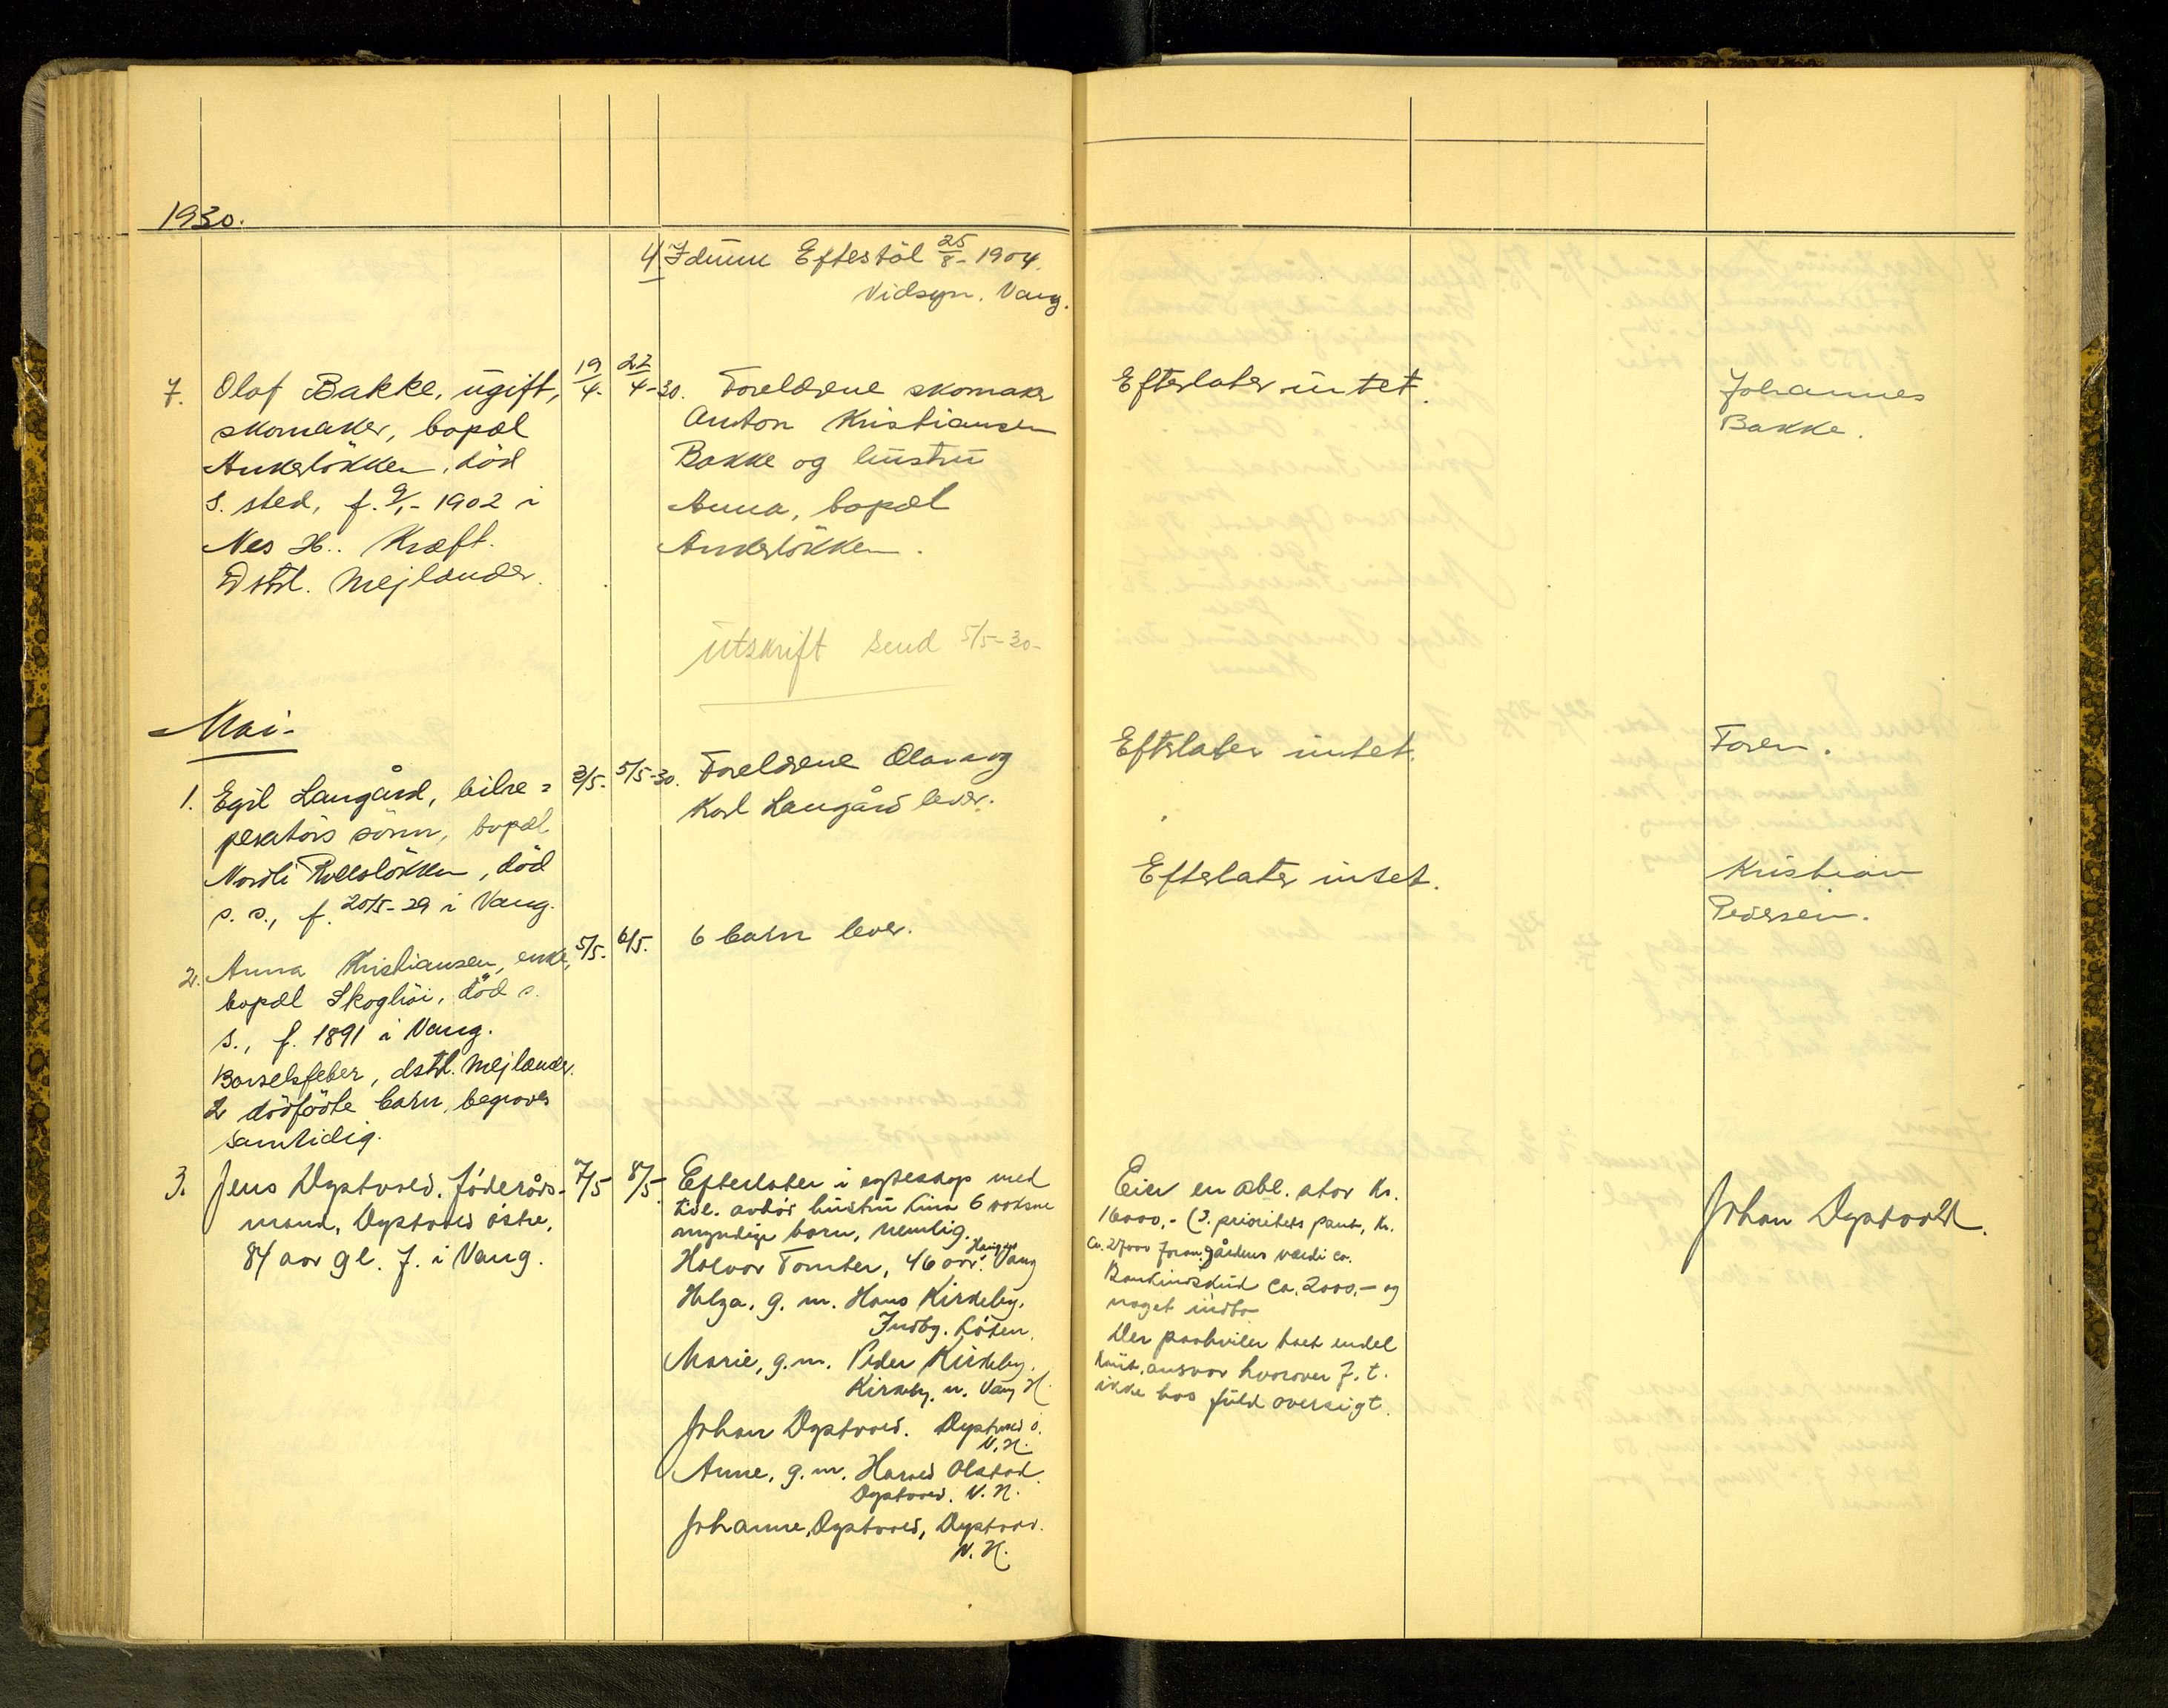 1930.
4. Idunn Eftestöl 25/8 - 1904.
Vidsyn. Vang.
7. Olaf Bakke, ugift,
skomaker, bopæl
Ankerlökken, död
s. sted, f. 9/1 - 1902 i
Nes H.. Kræft.
Dstrl. Mejlænder.
19/4. 22/4-30.
Forældrene skomaker
Anton Kristiansen
Bakke og hustru
Anna, bopæl
Ankerlökken.
Efterlater intet.
Johannes
Bakke.
Utskrift send 5/5-30-
Mai-
1. Egil Langård, bilre=
peratörs sönn, bopæl
Nordli, död
s. s., f. 20/5-29 i Vang.
3/5. 5/5-30.
Forældrene Olav og
Karl Langård lever.
Efterlater intet.
Faren.
2. Anna Kristiansen, enke,
bopæl Skoghöi, död s.
s., f. 1891 i Vang.
Barselsfeber, dstrl. Mejlænder.
2 dödfödte barn begraves
samtidig.
5/5. 6/5.
6 barn lever.
Efterlater intet.
Kristian
Pedersen.
3. Jens Dystvold. föderåds-
mand, Dystvold östre,
84 aar gl. f. i Vang.
7/5 8/5.
Efterlater i egteskap med
tidl. avdöd hustru Lina 6 voksne
myndige barn, nemlig.
Halvor Tomter, 46 aar. Vang
Helga, g. m. Hans Kirkeby,
Indbg. Löten.
Marie, g. m. Peder Kirkeby.
Kirkeby. n. Vang H.
Johan Dystvold. Dystvold ö.
V. H.
Anne, g. m. Harald Olstad.
Dystvold. V. H.
Johanne Dystvold, Dystvold.
V. H.
Eier en obl. stor kr.
16000,- (3. prioritets pant, kr.
ca. 27000 foran. gårdens værdi ca.
Bankindskud ca. 2000.- og
noget indbo
Der paahviler boet endel
kaut. ansvar hvorover f. t.
ikke has fuld oversigt.
Johan Dystvold.